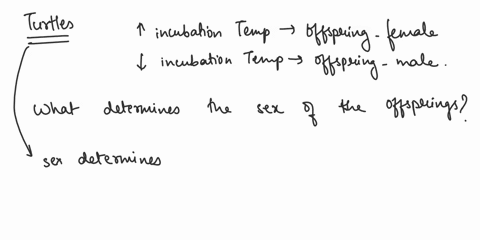 Turtles ↑ incubation Temp → offspring - female
↓ incubation Temp → offspring - male.
What determines the sex of the offsperings?
sex determines